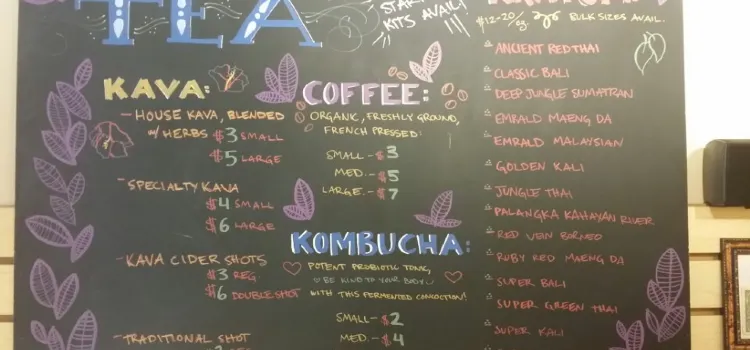 TEA
KITS AVAIL!
$12-20/oz. BULK SIZES AVAIL.
KAVA:
- HOUSE KAVA, BLENDED
W/ HERBS $3 SMALL
$5 LARGE
- SPECIALTY KAVA
$4 SMALL
$6 LARGE
- KAVA CIDER SHOTS
$3 REG
$6 DOUBLE SHOT
- TRADITIONAL SHOT
COFFEE:
ORGANIC, FRESHLY GROUND,
FRENCH PRESSED:
SMALL - $3
MED. - $5
LARGE - $7
KOMBUCHA:
POTENT PROBIOTIC TONIC,
BE KIND TO YOUR BODY
WITH THIS FERMENTED CONCOCTION!
SMALL - $2
MED. - $4
ANCIENT RED THAI
CLASSIC BALI
DEEP JUNGLE SUMATRAN
EMRALD MAENG DA
EMRALD MALAYSIAN
GOLDEN KALI
JUNGLE THAI
PALANGKA KAHAYAN RIVER
RED VEIN BORNEO
RUBY RED MAENG DA
SUPER BALI
SUPER GREEN THAI
SUPER KALI